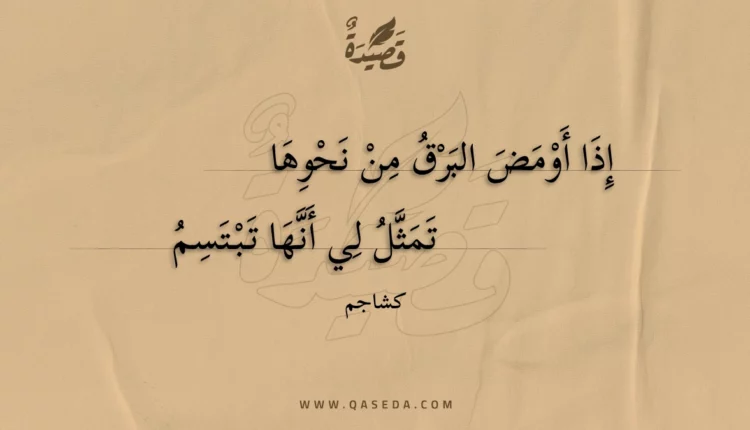 قَصِيدَةٌ
إِذَا أَوْمَضَ البَرْقُ مِنْ نَحْوِهَا
تَمَثَّلُ لِي أَنَّهَا تَبْتَسِمُ
كشاجم
WWW.QASEDA.COM